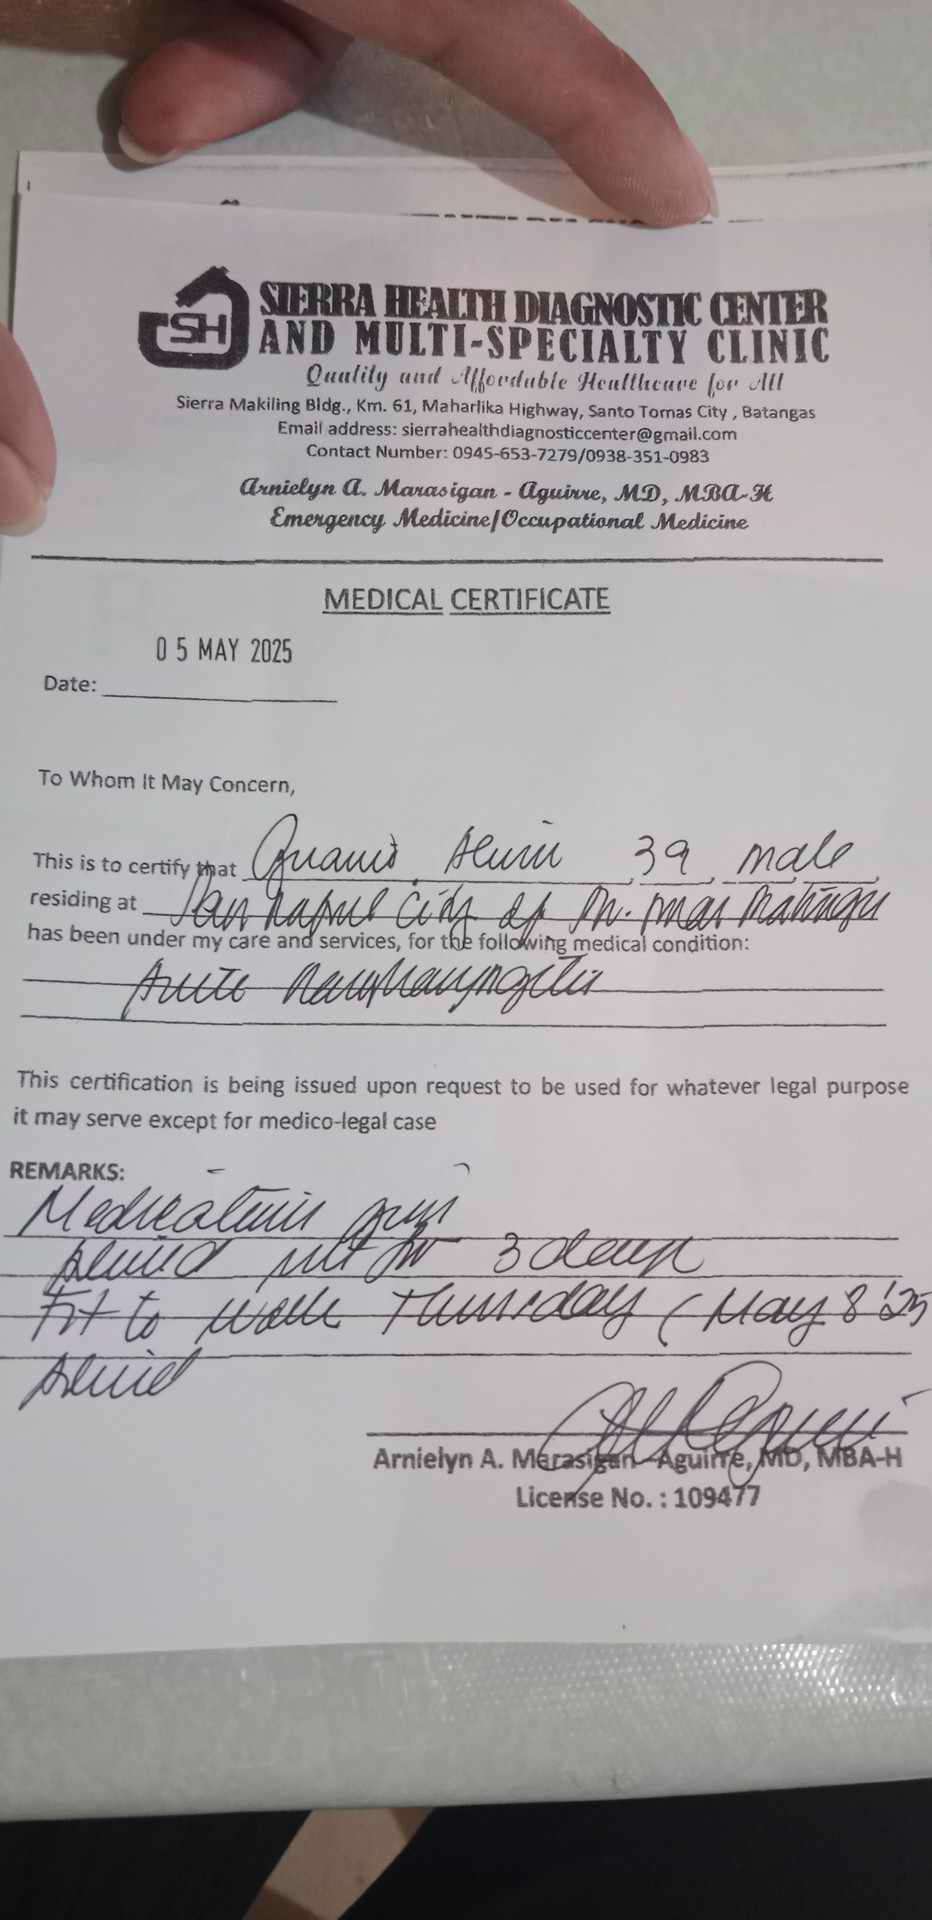 SH
SIERRA HEALTH DIAGNOSTIC CENTER
AND MULTI-SPECIALTY CLINIC
Quality and Affordable Healthcare for All
Sierra Makiling Bldg., Km. 61, Maharlika Highway, Santo Tomas City , Batangas
Email address: sierrahealthdiagnosticcenter@gmail.com
Contact Number: 0945-653-7279/0938-351-0983
Arnielyn A. Marasigan - Aguirre, MD, MBA-H
Emergency Medicine/Occupational Medicine
MEDICAL CERTIFICATE
05 MAY 2025
Date:
To Whom It May Concern,
This is to certify that 39 male
residing at San Rafael City of
has been under my care and services, for the following medical condition:
Acute Nasopharyngitis
This certification is being issued upon request to be used for whatever legal purpose
it may serve except for medico-legal case
REMARKS:
Medication
for 3 days
Fit to work Thursday (May 8 '25
Arnielyn A. Marasigan - Aguirre, MD, MBA-H
License No. : 109477